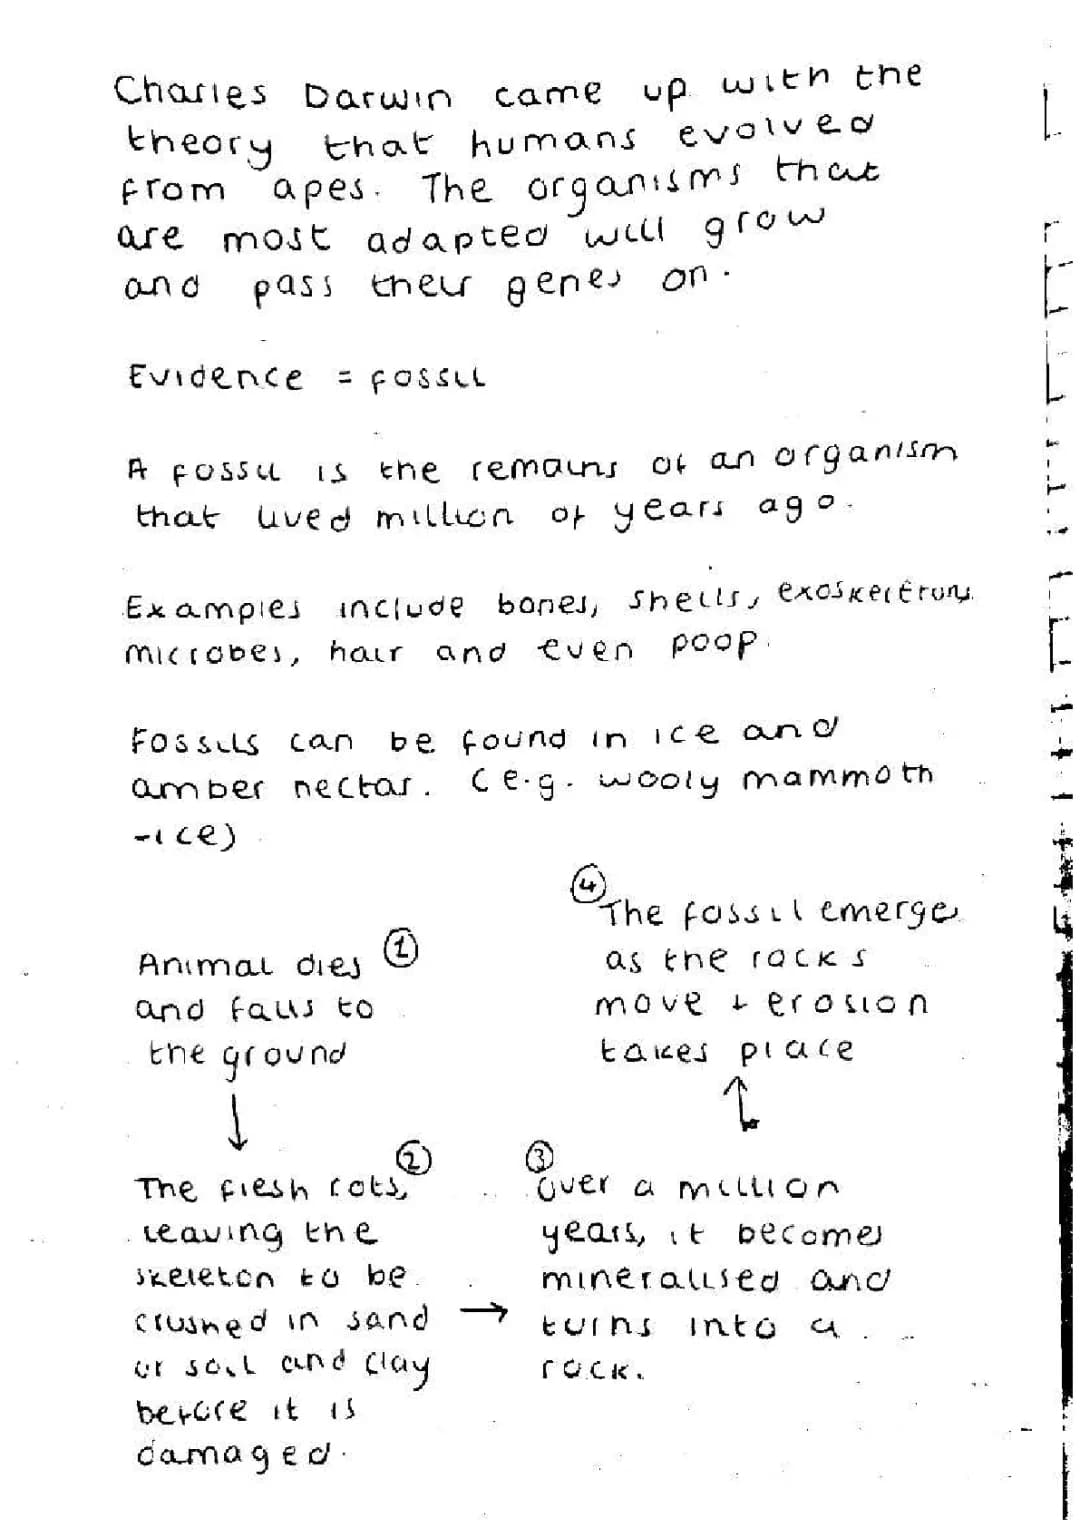 Charles Darwin came up with the
theory that humans evolved
from apes. The organisms that
are most adapted will grow
and pass their genes on.
Evidence = fossil
A fossil is the remains of an organism
that lived million of years ago.
Examples include bones, shells,
microbes, hair and even poop.
Fossils can be found in ice and
amber nectar. (e.g. wooly mammoth
-ice)
①
Animal dies
and falls to
the ground
↓
②
The flesh rots,
leaving the
skeleton to be
crushed in sand
or soil and clay
before it is
damaged.
→
③
Over a million
years, it becomes
mineralised and
turns into a
rock.
↑
④
The fossil emerges
as the rocks
move + erosion
takes place